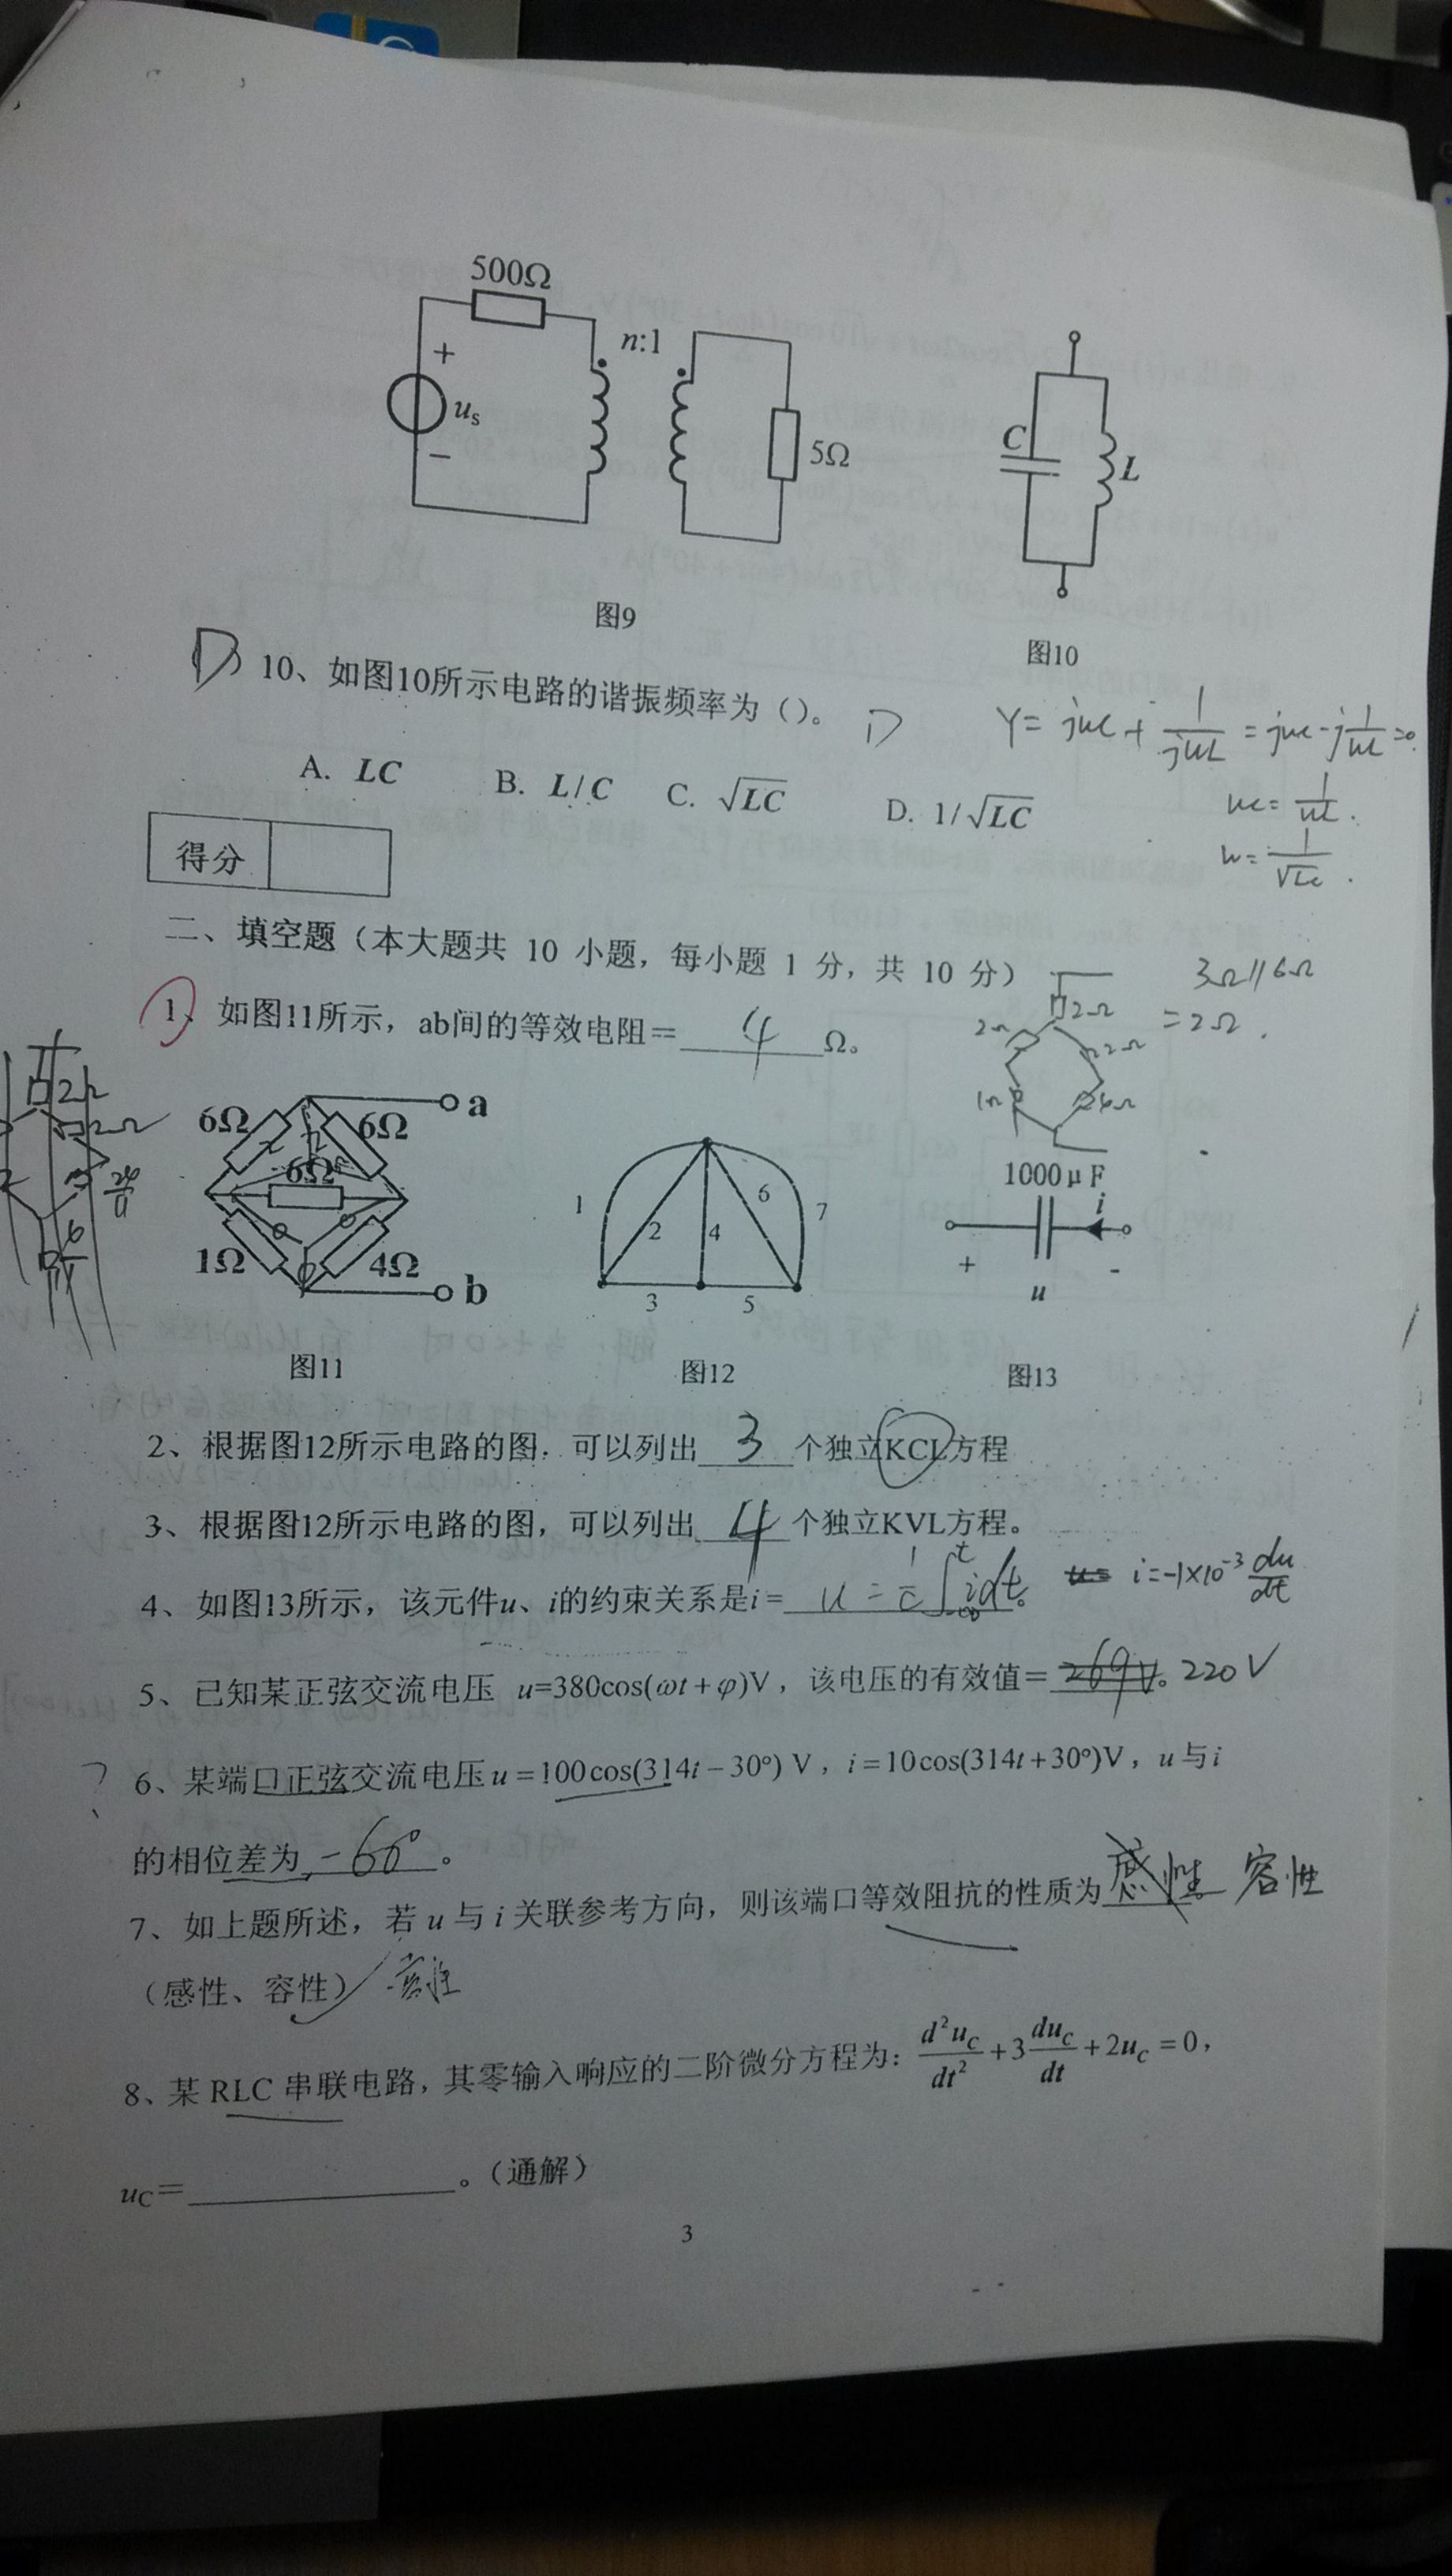 500Ω
n:1
+
us
−
5Ω
C
L
图9
图10
D 10、如图10所示电路的谐振频率为（）。 D
Y= jwc + 1/jwL = jwc - j1/wL =0.
A. LC B. L/C C. √LC D. 1/√LC
wc= 1/wL.
w= 1/√LC.
得分
二、填空题（本大题共 10 小题，每小题 1 分，共 10 分）
3Ω//6Ω
=2Ω.
1、如图11所示，ab间的等效电阻＝ 4 Ω。
2Ω
2Ω
2Ω
1Ω
2Ω
2Ω
6Ω
6Ω
a
6Ω
1Ω
4Ω
b
1
2
3
4
5
6
7
1000μF
i
+
-
u
图11
图12
图13
2、根据图12所示电路的图．可以列出 3 个独立KCL方程
3、根据图12所示电路的图，可以列出 4 个独立KVL方程。
4、如图13所示，该元件u、i的约束关系是i＝ u = 1/c ∫ t -∞ idt。 i=-1×10⁻³ du/dt
5、已知某正弦交流电压 u=380cos(ωt+φ)V，该电压的有效值＝ 269V。 220V
? 6、某端口正弦交流电压u=100cos(314t−30°) V，i=10cos(314t+30°)V，u与i
的相位差为 -60° 。
7、如上题所述，若 u 与 i 关联参考方向，则该端口等效阻抗的性质为 感性。 容性
（感性、容性） 容性
8、某 RLC 串联电路，其零输入响应的二阶微分方程为： d²uC/dt² +3 duC/dt +2uC =0，
uC＝ 。（通解）
3